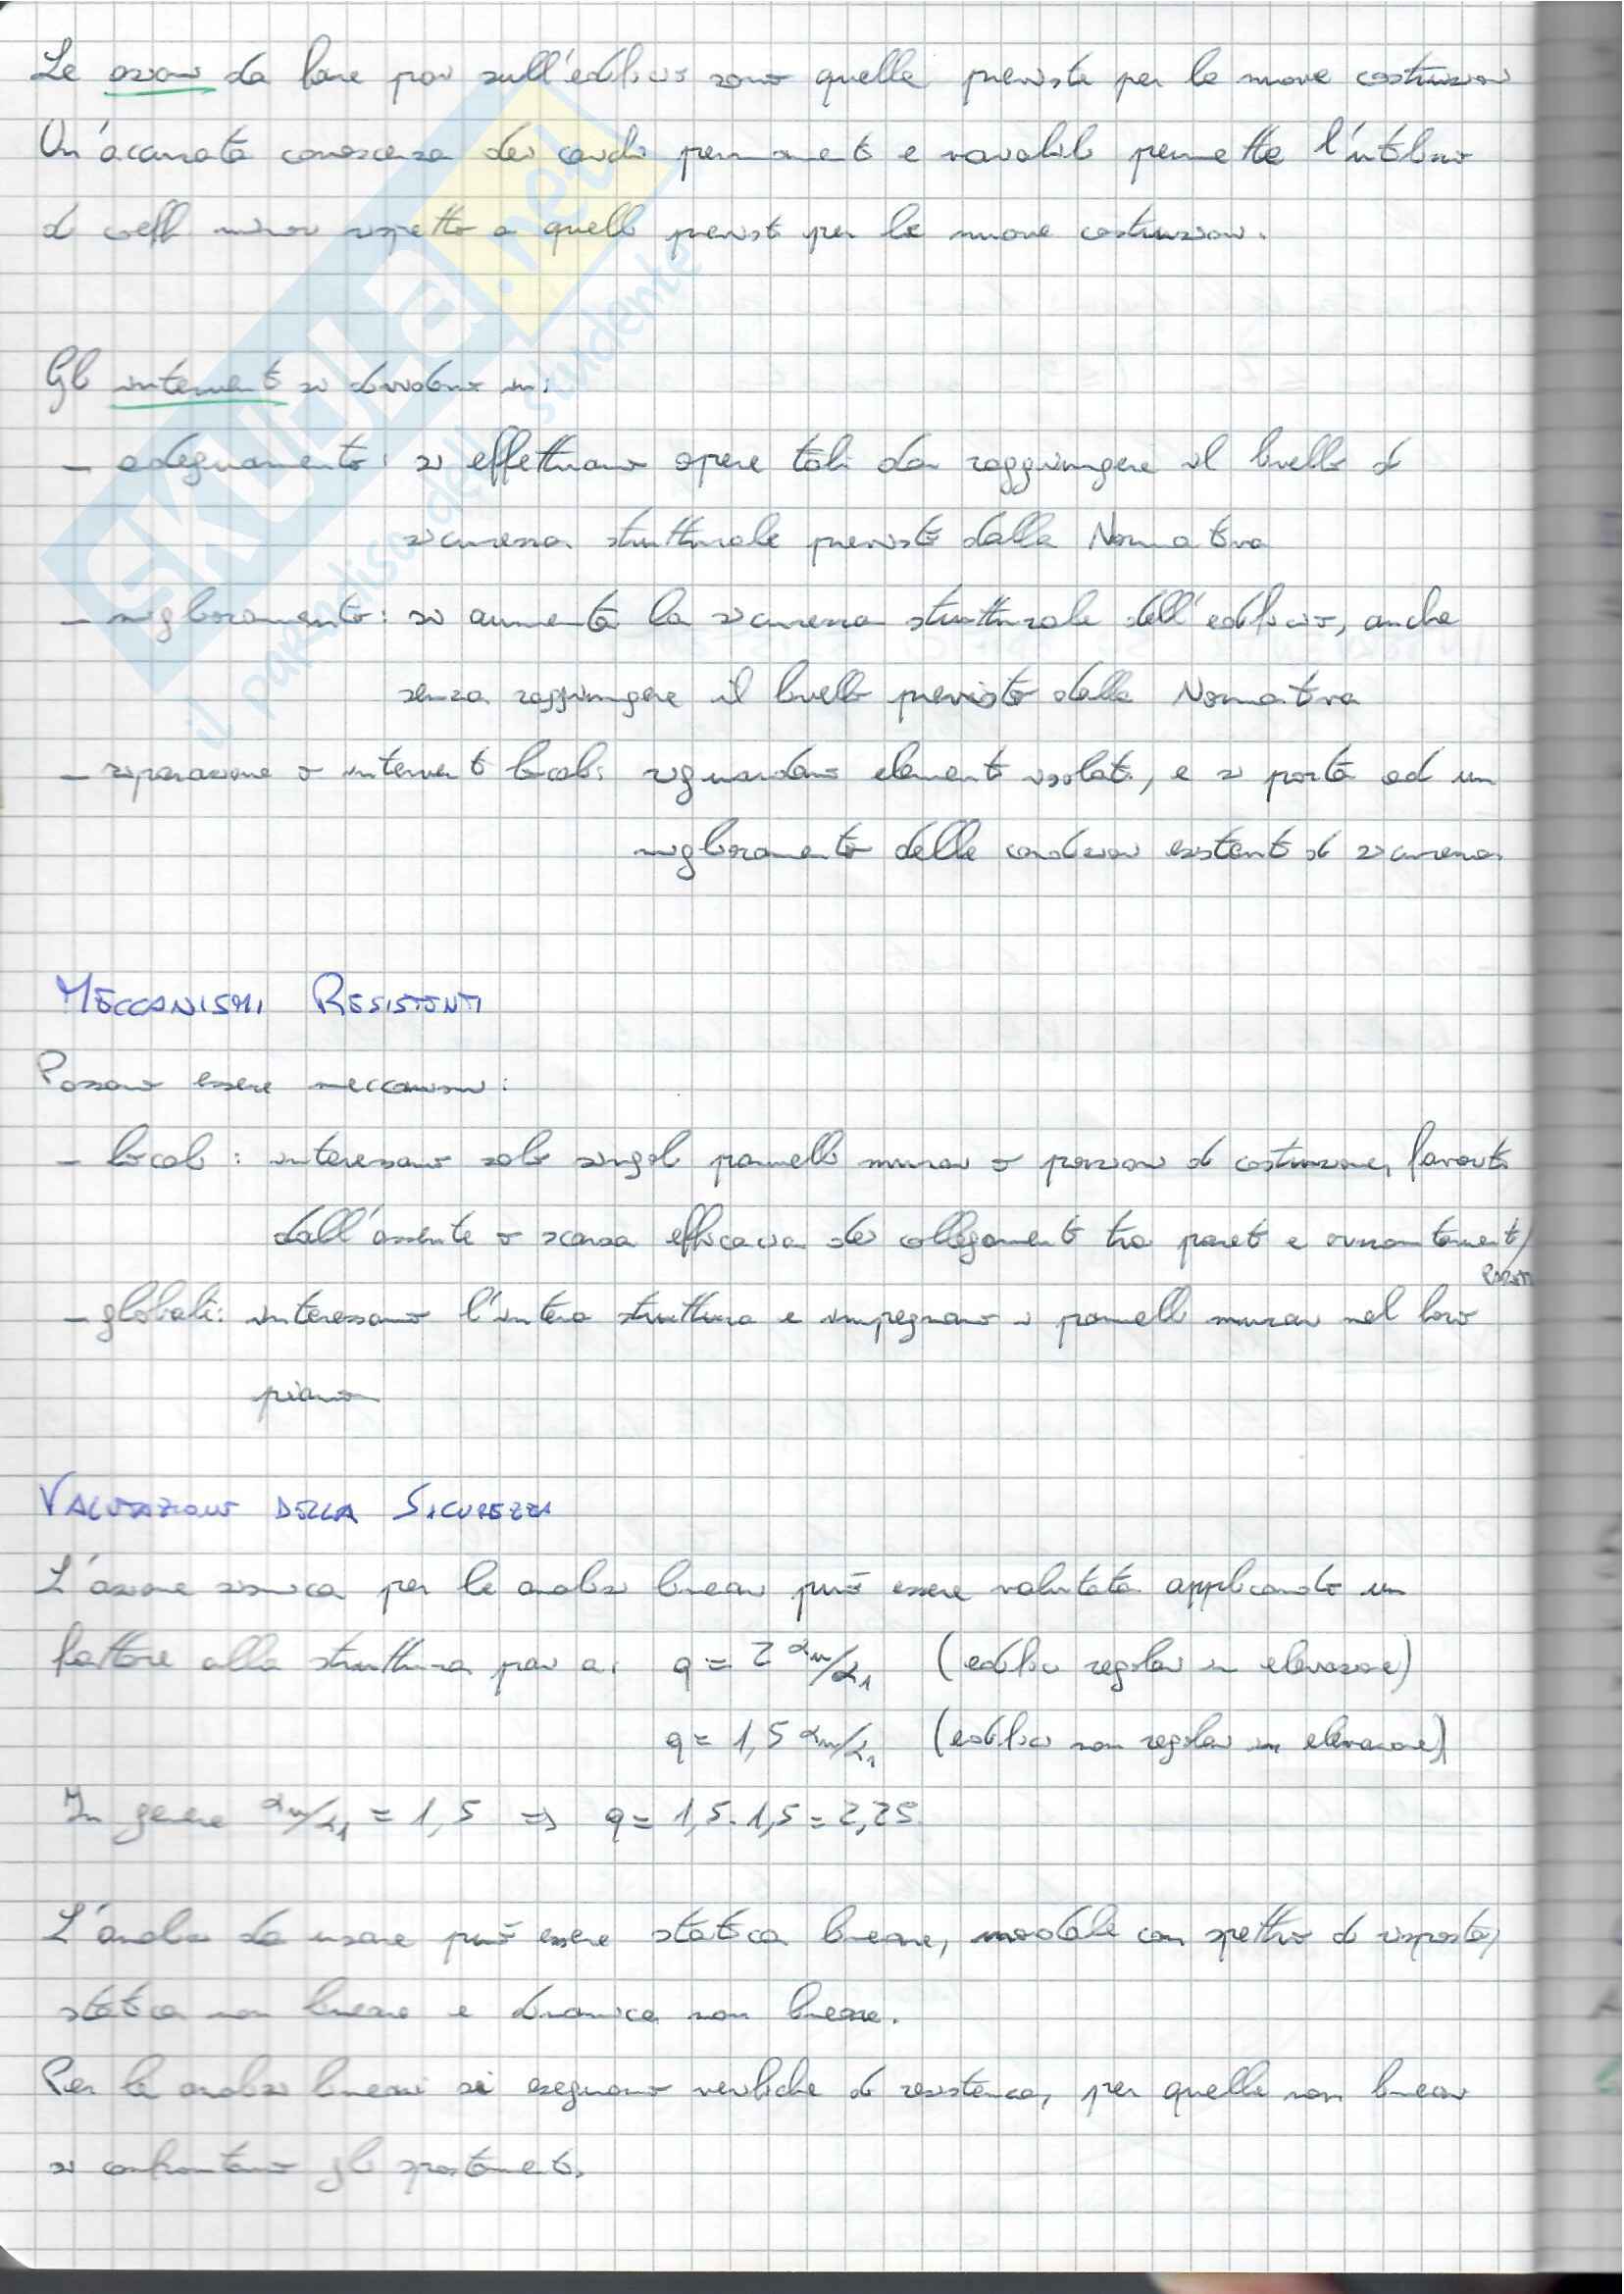 Le azioni da fare poi sull'edificio sono quelle previste per le nuove costruzioni
Un'accurata conoscenza dei carichi permanenti e variabili permette l'utilizzo
di coeff minori rispetto a quelli previsti per le nuove costruzioni.
Gli interventi si dividono in:
- adeguamento: si effettuano opere tali da raggiungere il livello di
sicurezza strutturale previsto dalla Normativa
- miglioramento: si aumenta la sicurezza strutturale dell'edificio, anche
senza raggiungere il livello previsto dalla Normativa
- riparazione o interventi locali: riguardano elementi isolati, e si porta ad un
miglioramento delle condizioni esistenti di sicurezza.
MECCANISMI RESISTENTI
Possono essere meccanismi:
- locali: interessano solo singoli pannelli murari o porzioni di costruzione, favoriti
dall'assente o scarsa efficacia dei collegamenti tra pareti e orizzontamenti/
- globali: interessano l'intera struttura e impegnano i pannelli murari nel loro
piano
VALUTAZIONE DELLA SICUREZZA
L'azione sismica per le analisi lineari può essere valutata applicando un
fattore alla struttura pari a: q = 2 αu/α1 (edifici regolari in elevazione)
q = 1,5 αu/α1 (edifici non regolari in elevazione)
In genere αu/α1 = 1,5 => q = 1,5·1,5 = 2,25
L'analisi da usare può essere statica lineare, modale con spettro di risposta,
statica non lineare e dinamica non lineare.
Per le analisi lineari si eseguono verifiche di resistenza, per quelle non lineari
si confrontano gli spostamenti.
SKUOLA.net
il paradiso dello studente